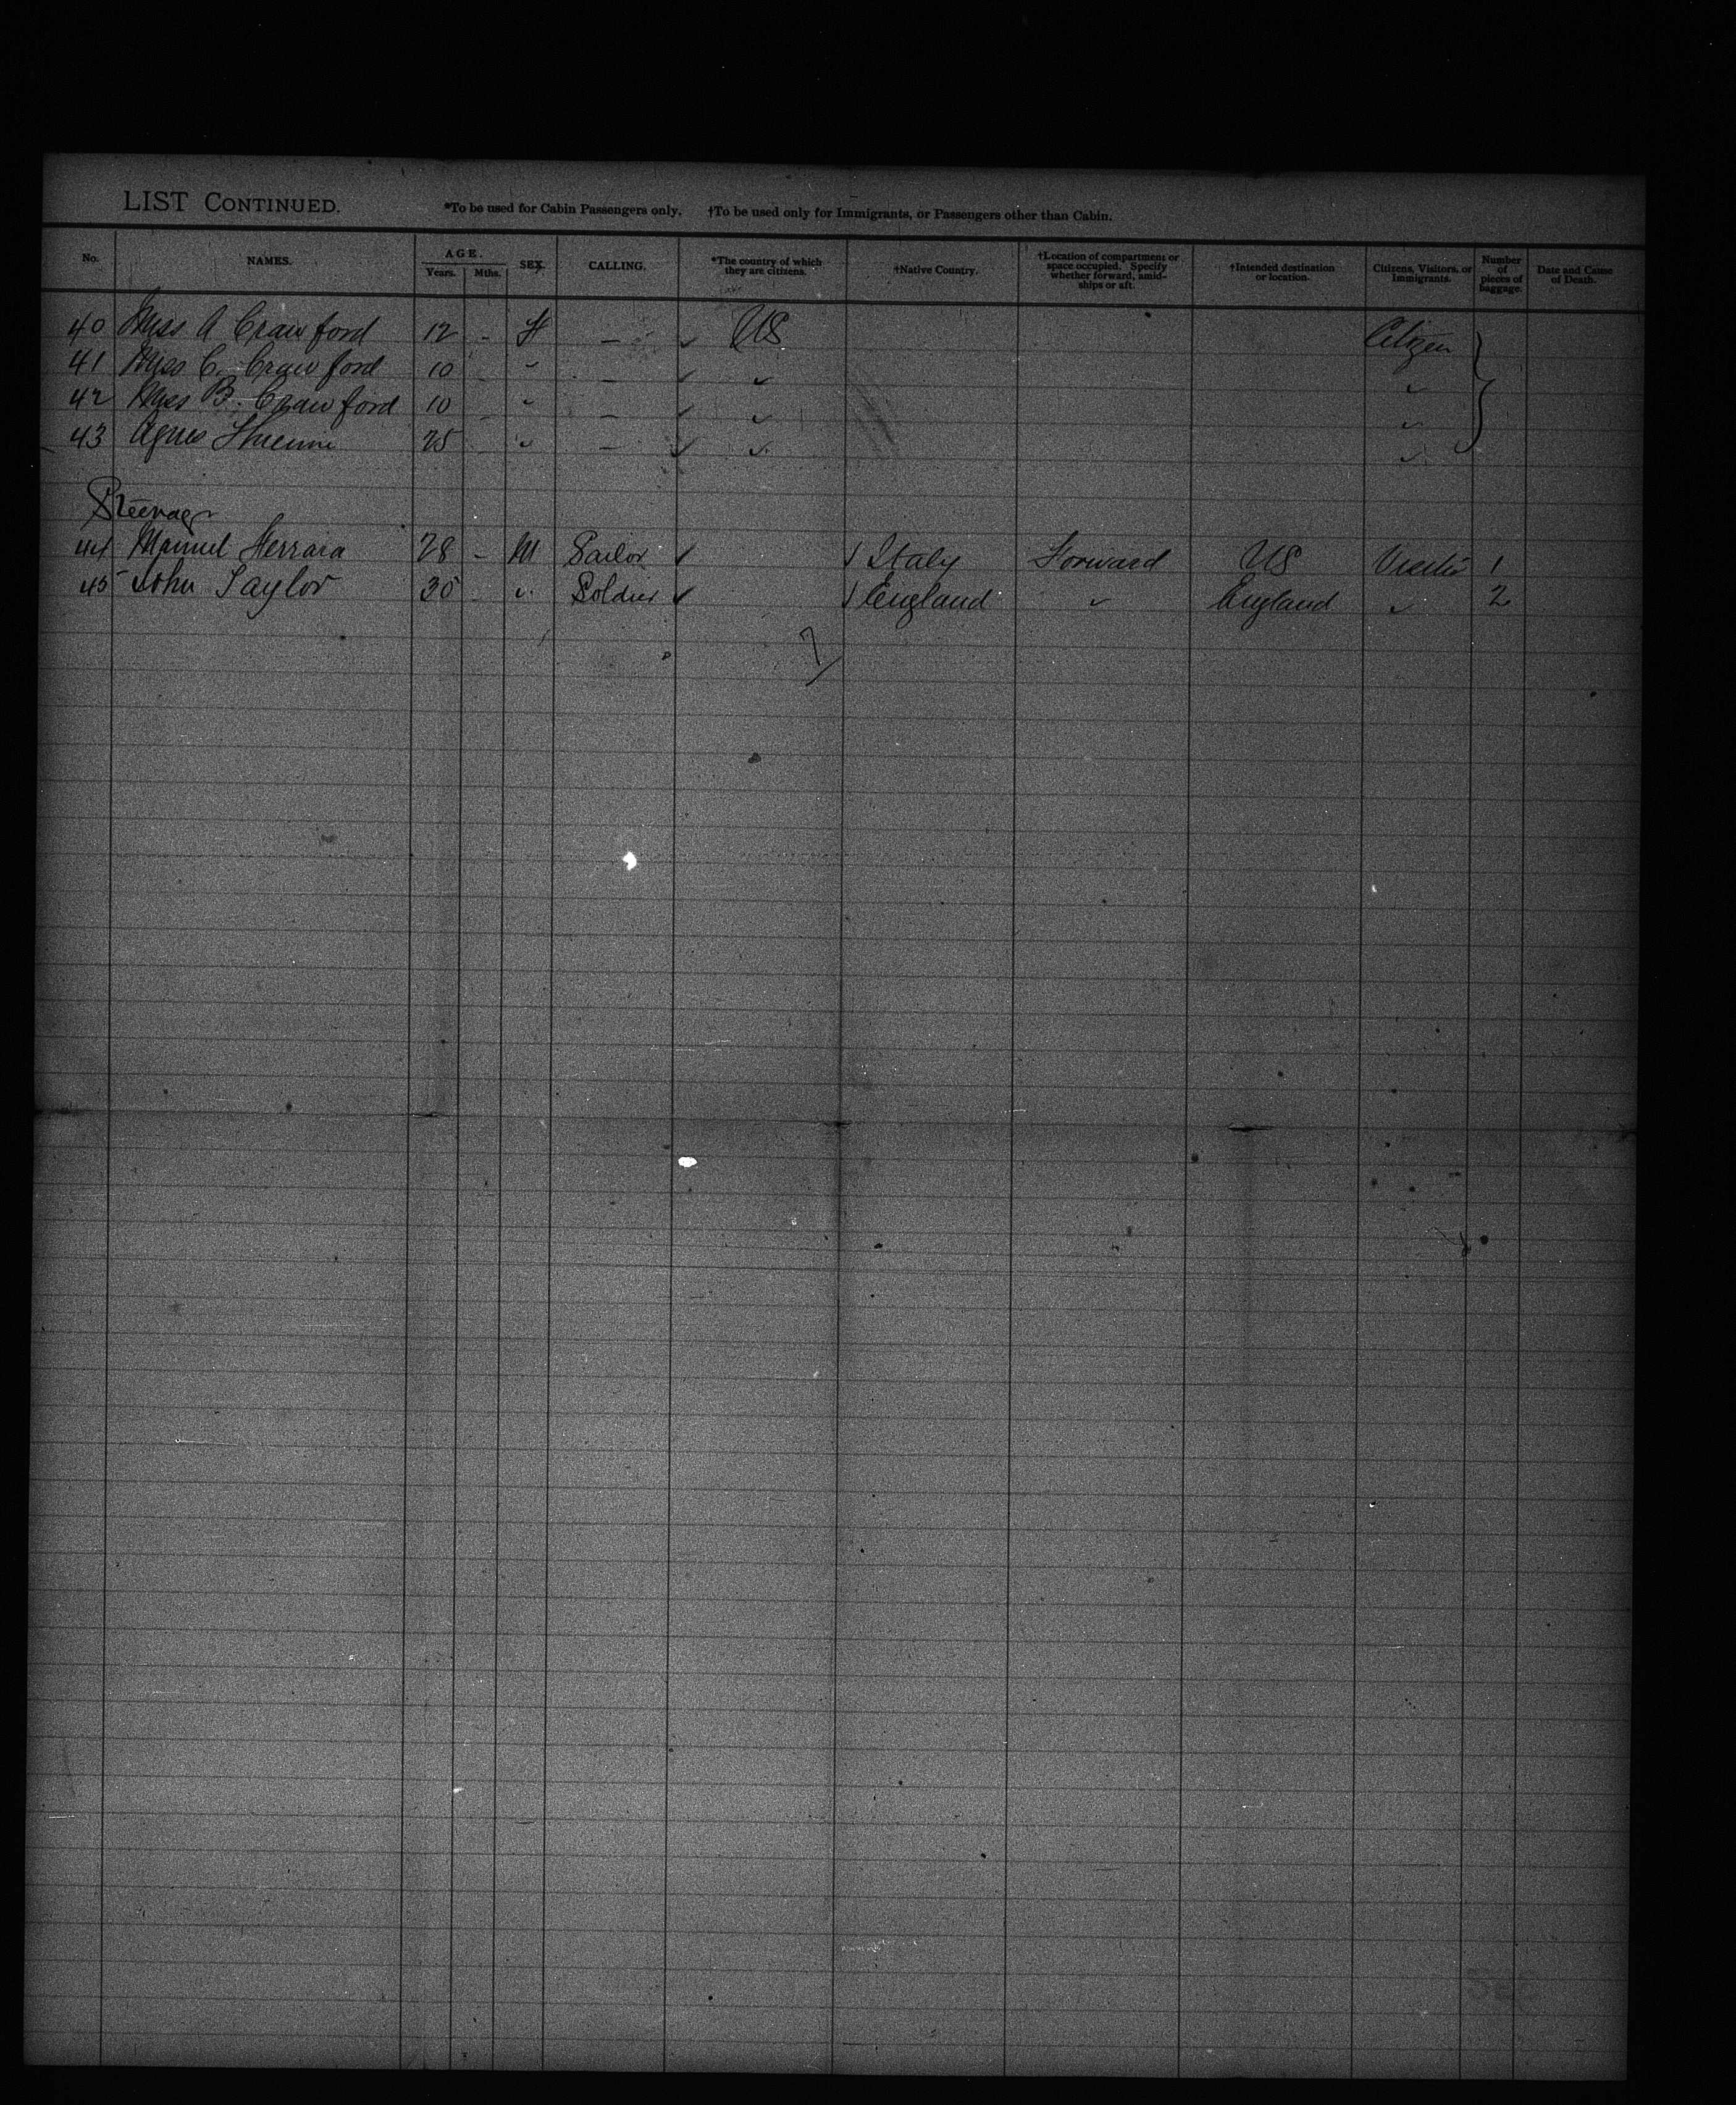 LIST CONTINUED. *To be used for Cabin Passengers only. †To be used only for Immigrants, or Passengers other than Cabin.
No. NAMES. AGE. Years. Mths. SEX. CALLING. *The country of which they are citizens. †Native Country. †Location of compartment or space occupied. Specify whether forward, amidships or aft. †Intended destination or location. Citizens, Visitors, or Immigrants. Number of pieces of baggage. Date and Cause of Death.
40 Miss A Crawford 12 - F - ✓ US Citizen }
41 Miss C. Crawford 10 " - ✓ " "
42 Miss B. Crawford 10 - " - ✓ " "
43 Agnes 25 " - ✓ " "
Steerage
44 Manuel Herrara 28 - M Sailor ✓ / Italy Forward US Visitor 1
45 John Taylor 30 - " Soldier ✓ / England " England " 2
7/